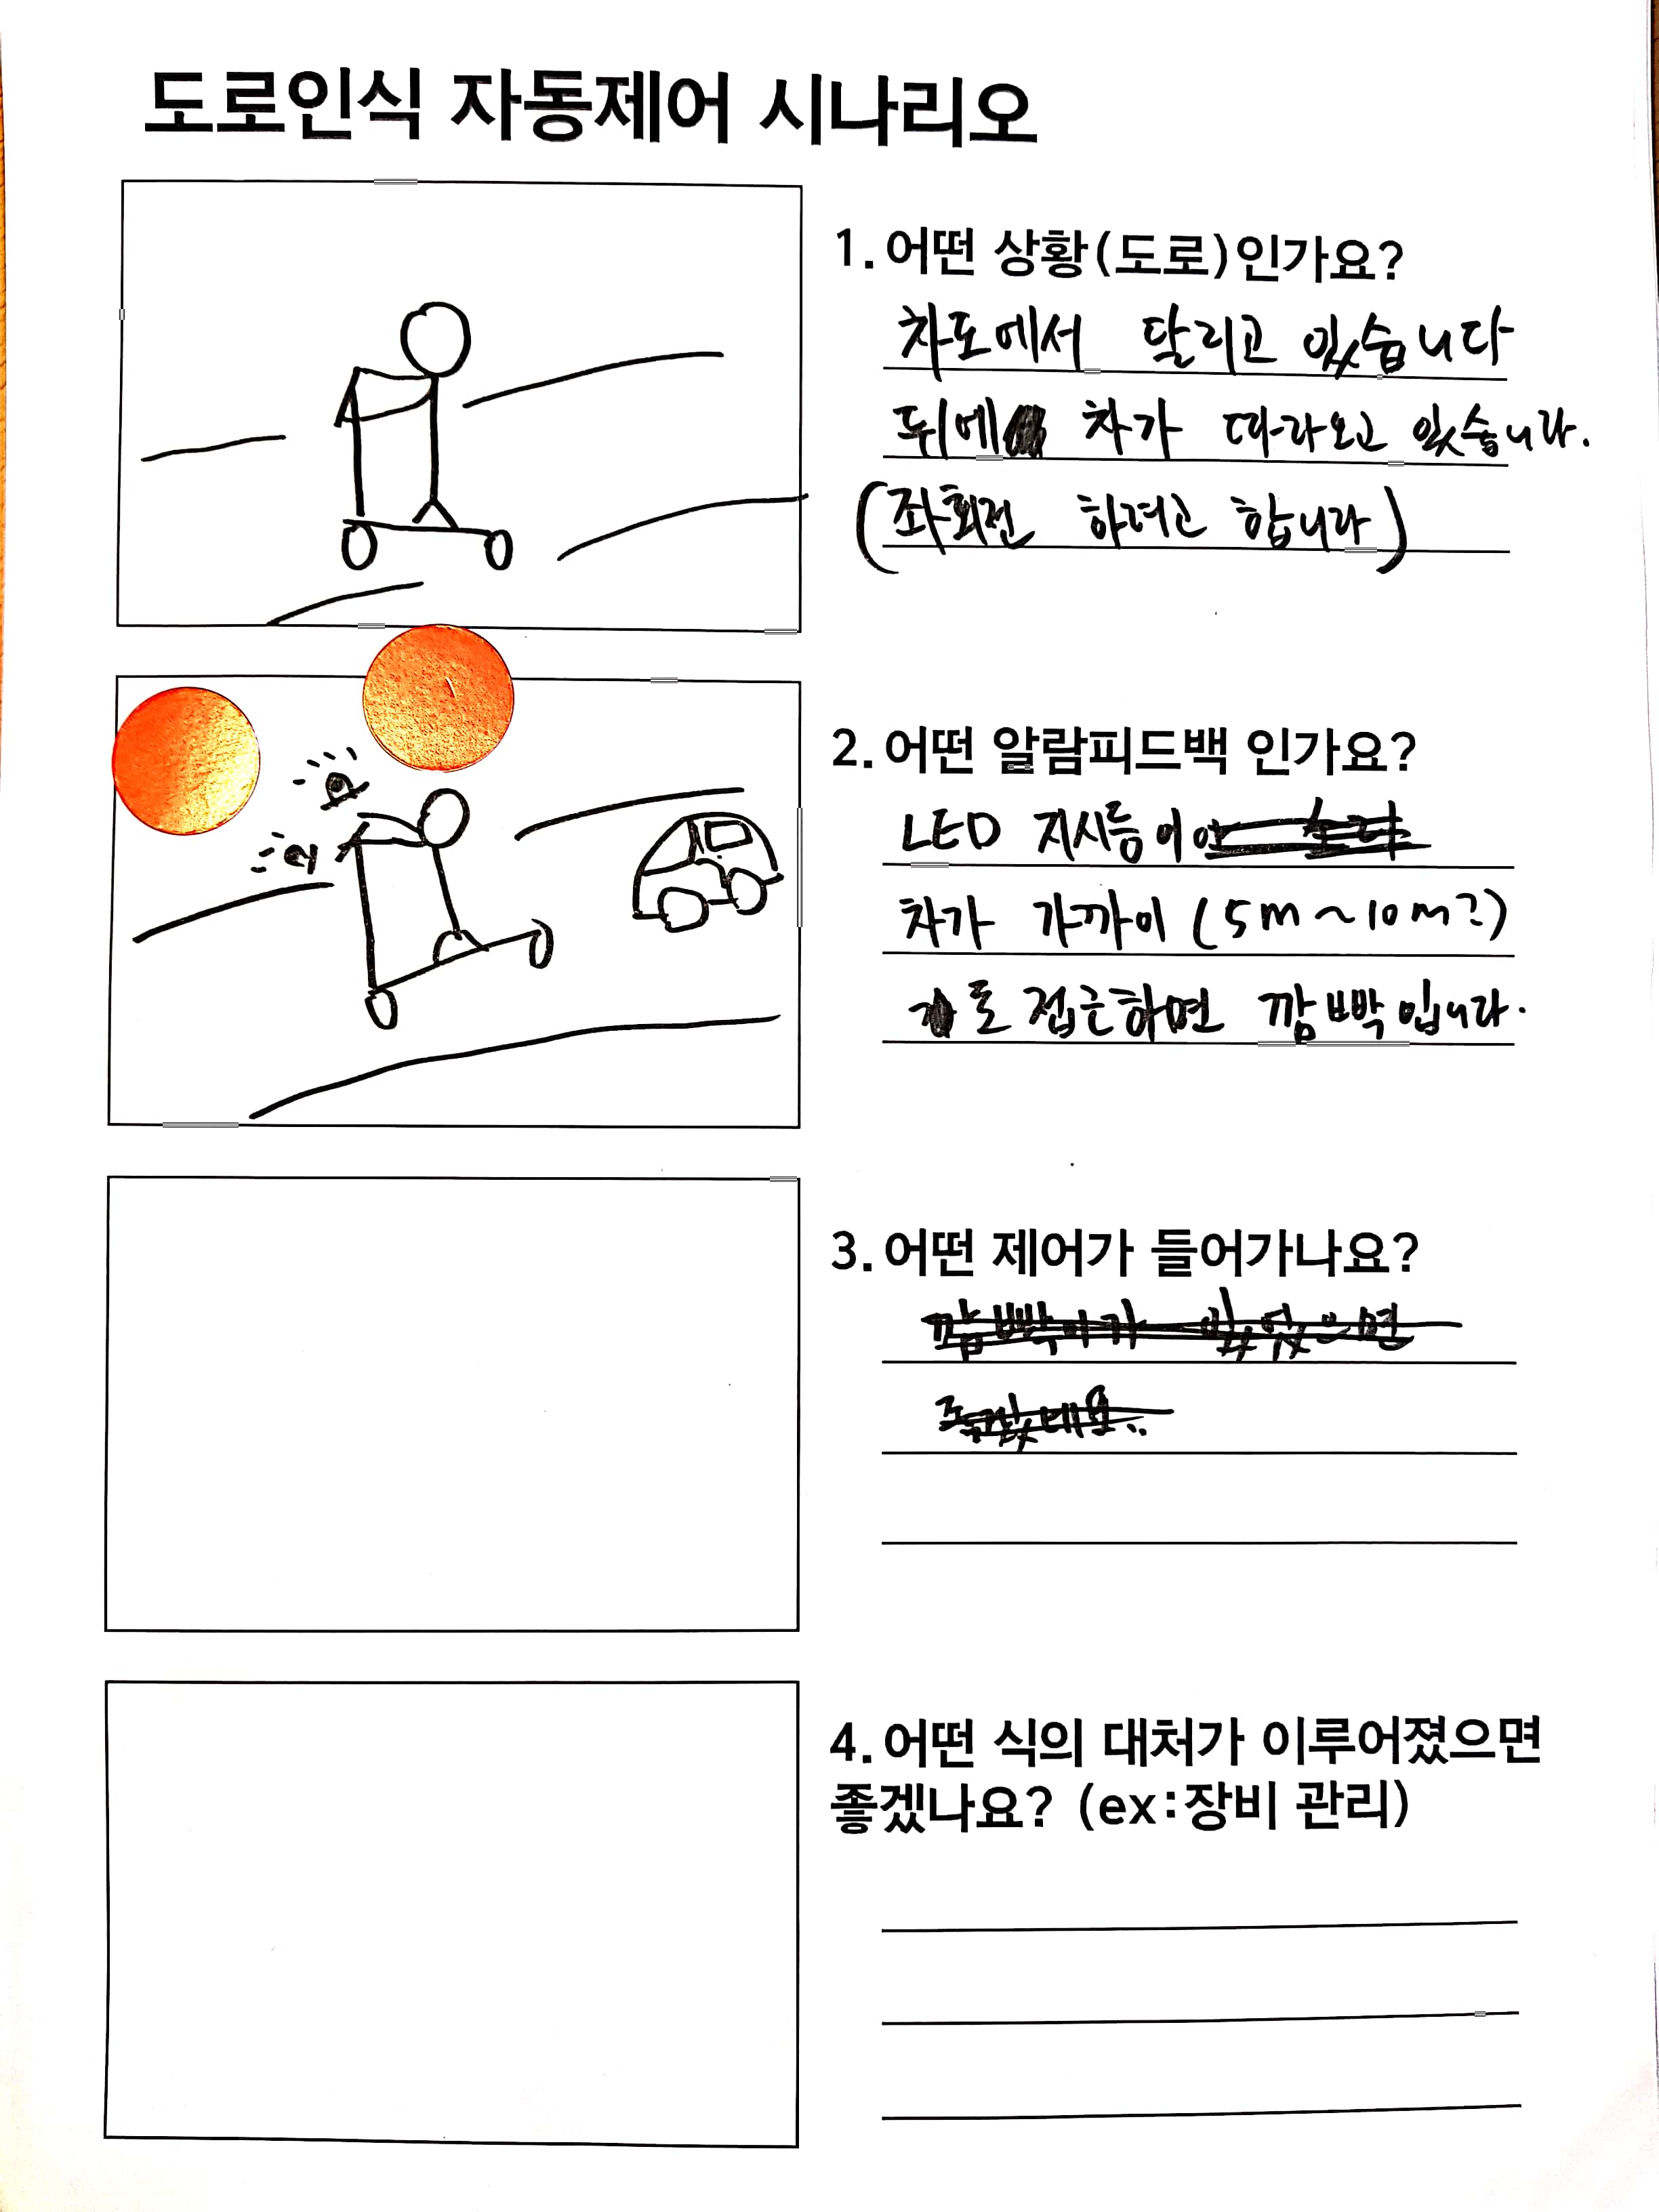 도로인식 자동제어 시나리오
1. 어떤 상황(도로)인가요?
차도에서 달리고 있습니다
뒤에 차가 따라오고 있습니다.
(좌회전 하려고 합니다)
2. 어떤 알람피드백 인가요?
LED 지시등이
차가 가까이 (5m~10m?)
로 접근하면 깜빡입니다.
3. 어떤 제어가 들어가나요?
깜빡이가 있었으면
좋겠네요..
4. 어떤 식의 대처가 이루어졌으면
좋겠나요? (ex:장비 관리)